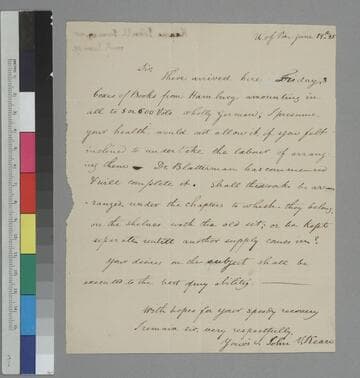 U. of Va. June
Sir,
There arrived here Friday, 3
boxes of Books from Hamburg amounting in
all to 5 or 600 Vols. wholly German; I presume
your health would not allow it if you felt
inclined to undertake the labour of arrang-
ing them — Dr. Blaetterman has commenced
& will complete it. Shall the works be ar-
ranged under the chapters to which they belong,
on the shelves with the old set; or be kept
separate untill another supply comes in?
Your desires on the subject shall be
executed to the best of my ability —
With hopes for your speedy recovery
I remain sir, very respectfully.
Your's &c John V. Kean